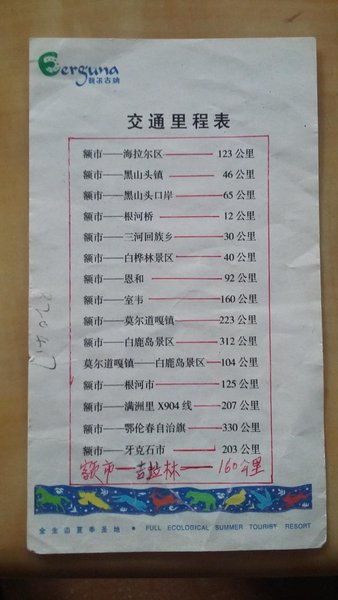 Eerguna
额尔古纳
交通里程表
额市——海拉尔区——123 公里
额市——黑山头镇——46 公里
额市——黑山头口岸——65 公里
额市——根河桥——12 公里
额市——三河回族乡——30 公里
额市——白桦林景区——40 公里
额市——恩和——92 公里
额市——室韦——160 公里
额市——莫尔道嘎镇——223 公里
额市——白鹿岛景区——312 公里
莫尔道嘎镇——白鹿岛景区——104 公里
额市——根河市——125 公里
额市——满洲里 X904 线——207 公里
额市——鄂伦春自治旗——330 公里
额市——牙克石市——203 公里
额市——吉拉林——160公里
全生态夏季圣地 ● FULL ECOLOGICAL SUMMER TOURIST RESORT